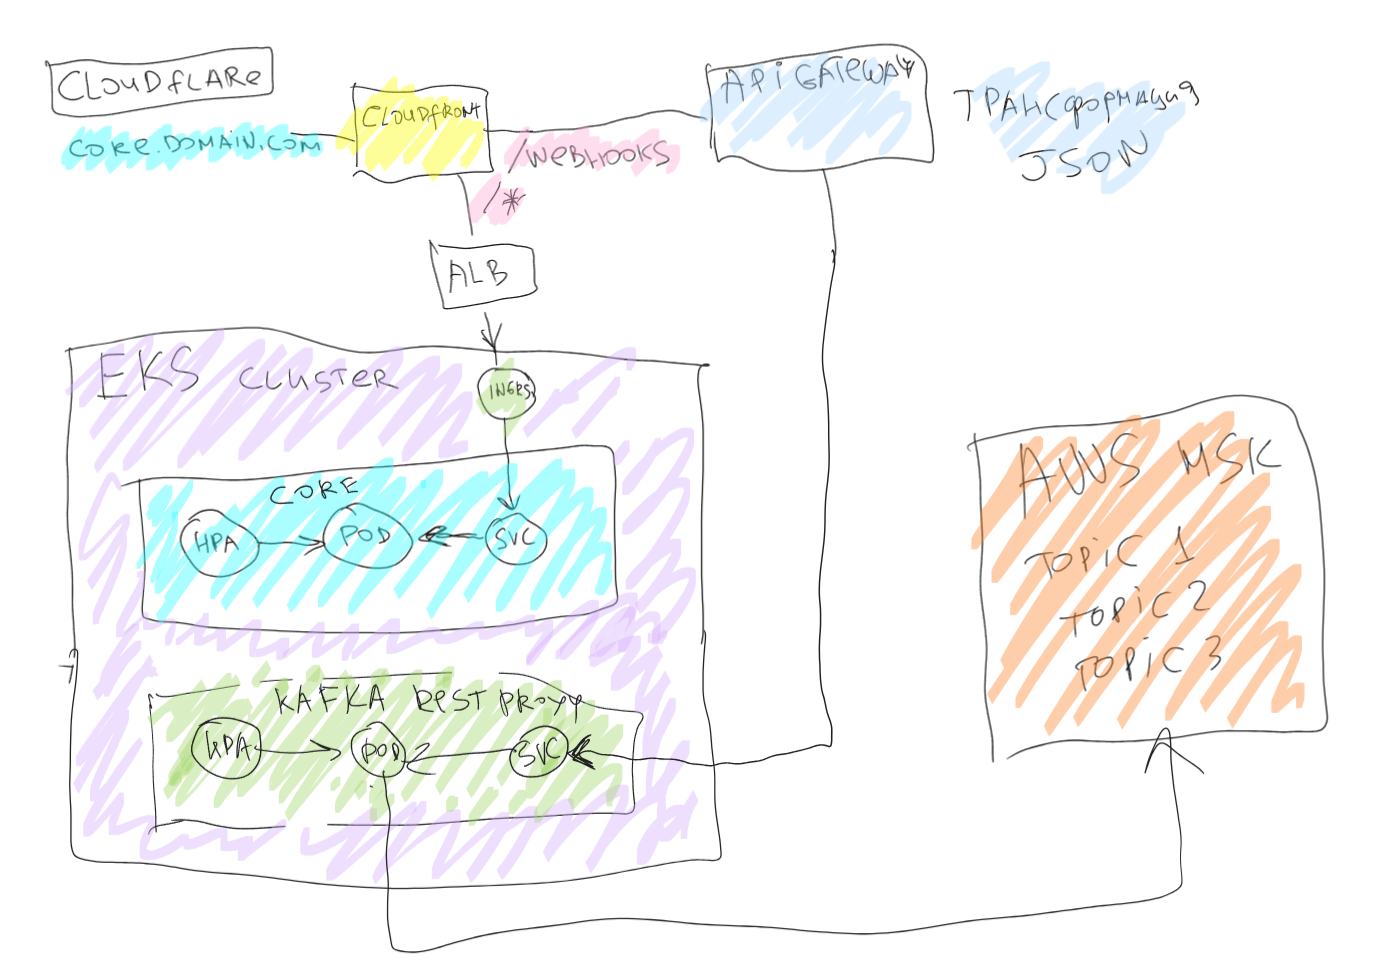 CLOUDFLARE
CORE.DOMAIN.COM
CLOUDFRONT
/WEBHOOKS
/*
API GATEWAY
ТРАНСФОРМАЦИЯ
JSON
ALB
EKS CLUSTER
INGRS
CORE
HPA
POD
SVC
KAFKA REST PROXY
HPA
POD
SVC
AWS MSK
TOPIC 1
TOPIC 2
TOPIC 3